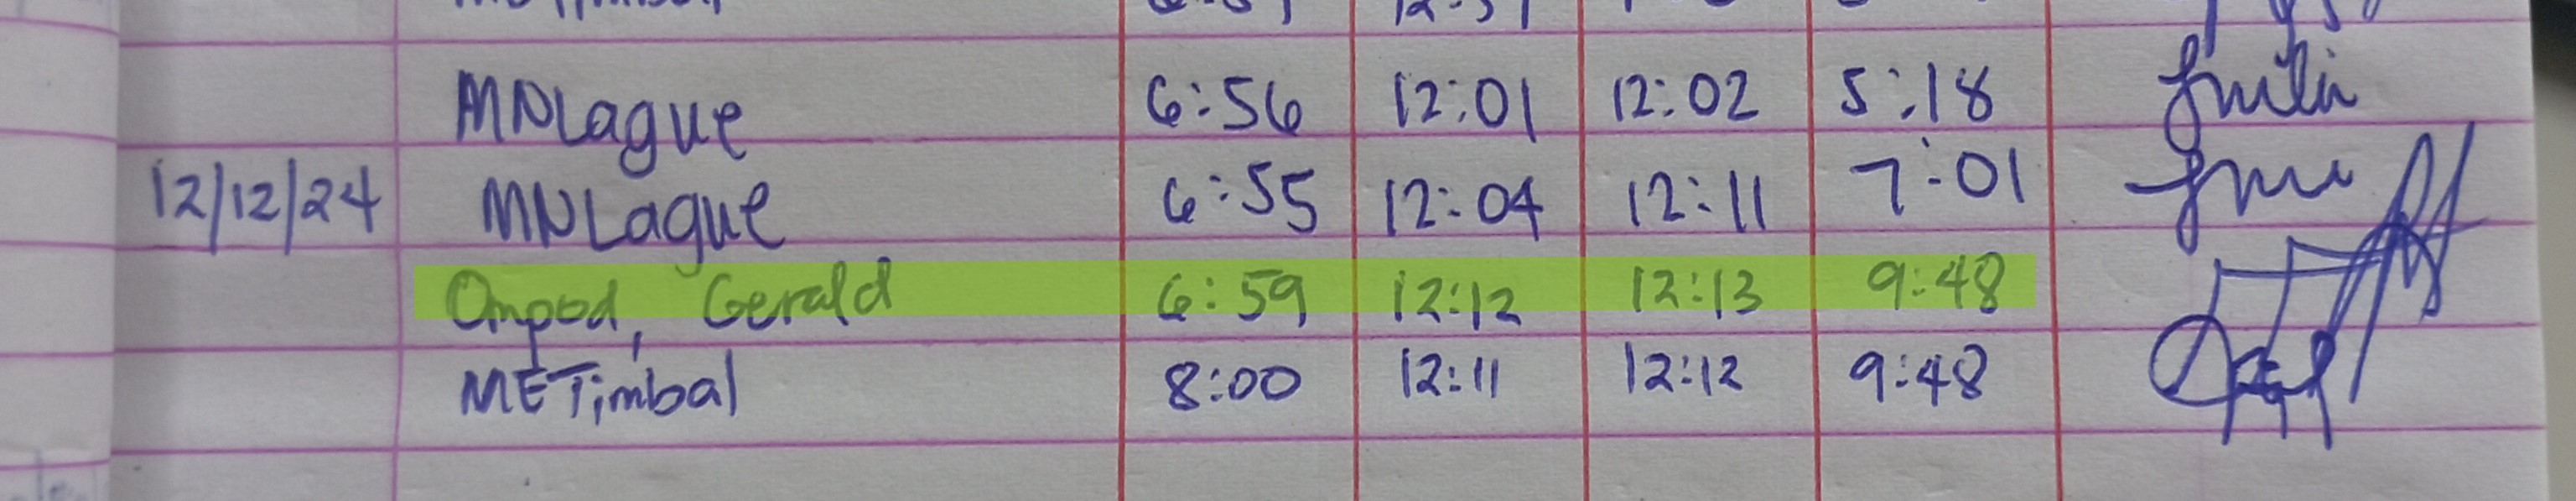 MNLague 6:56 12:01 12:02 5:18
12/12/24 MNLague 6:55 12:04 12:11 7:01
Ompod, Gerald 6:59 12:12 12:13 9:48
METimbal 8:00 12:11 12:12 9:48